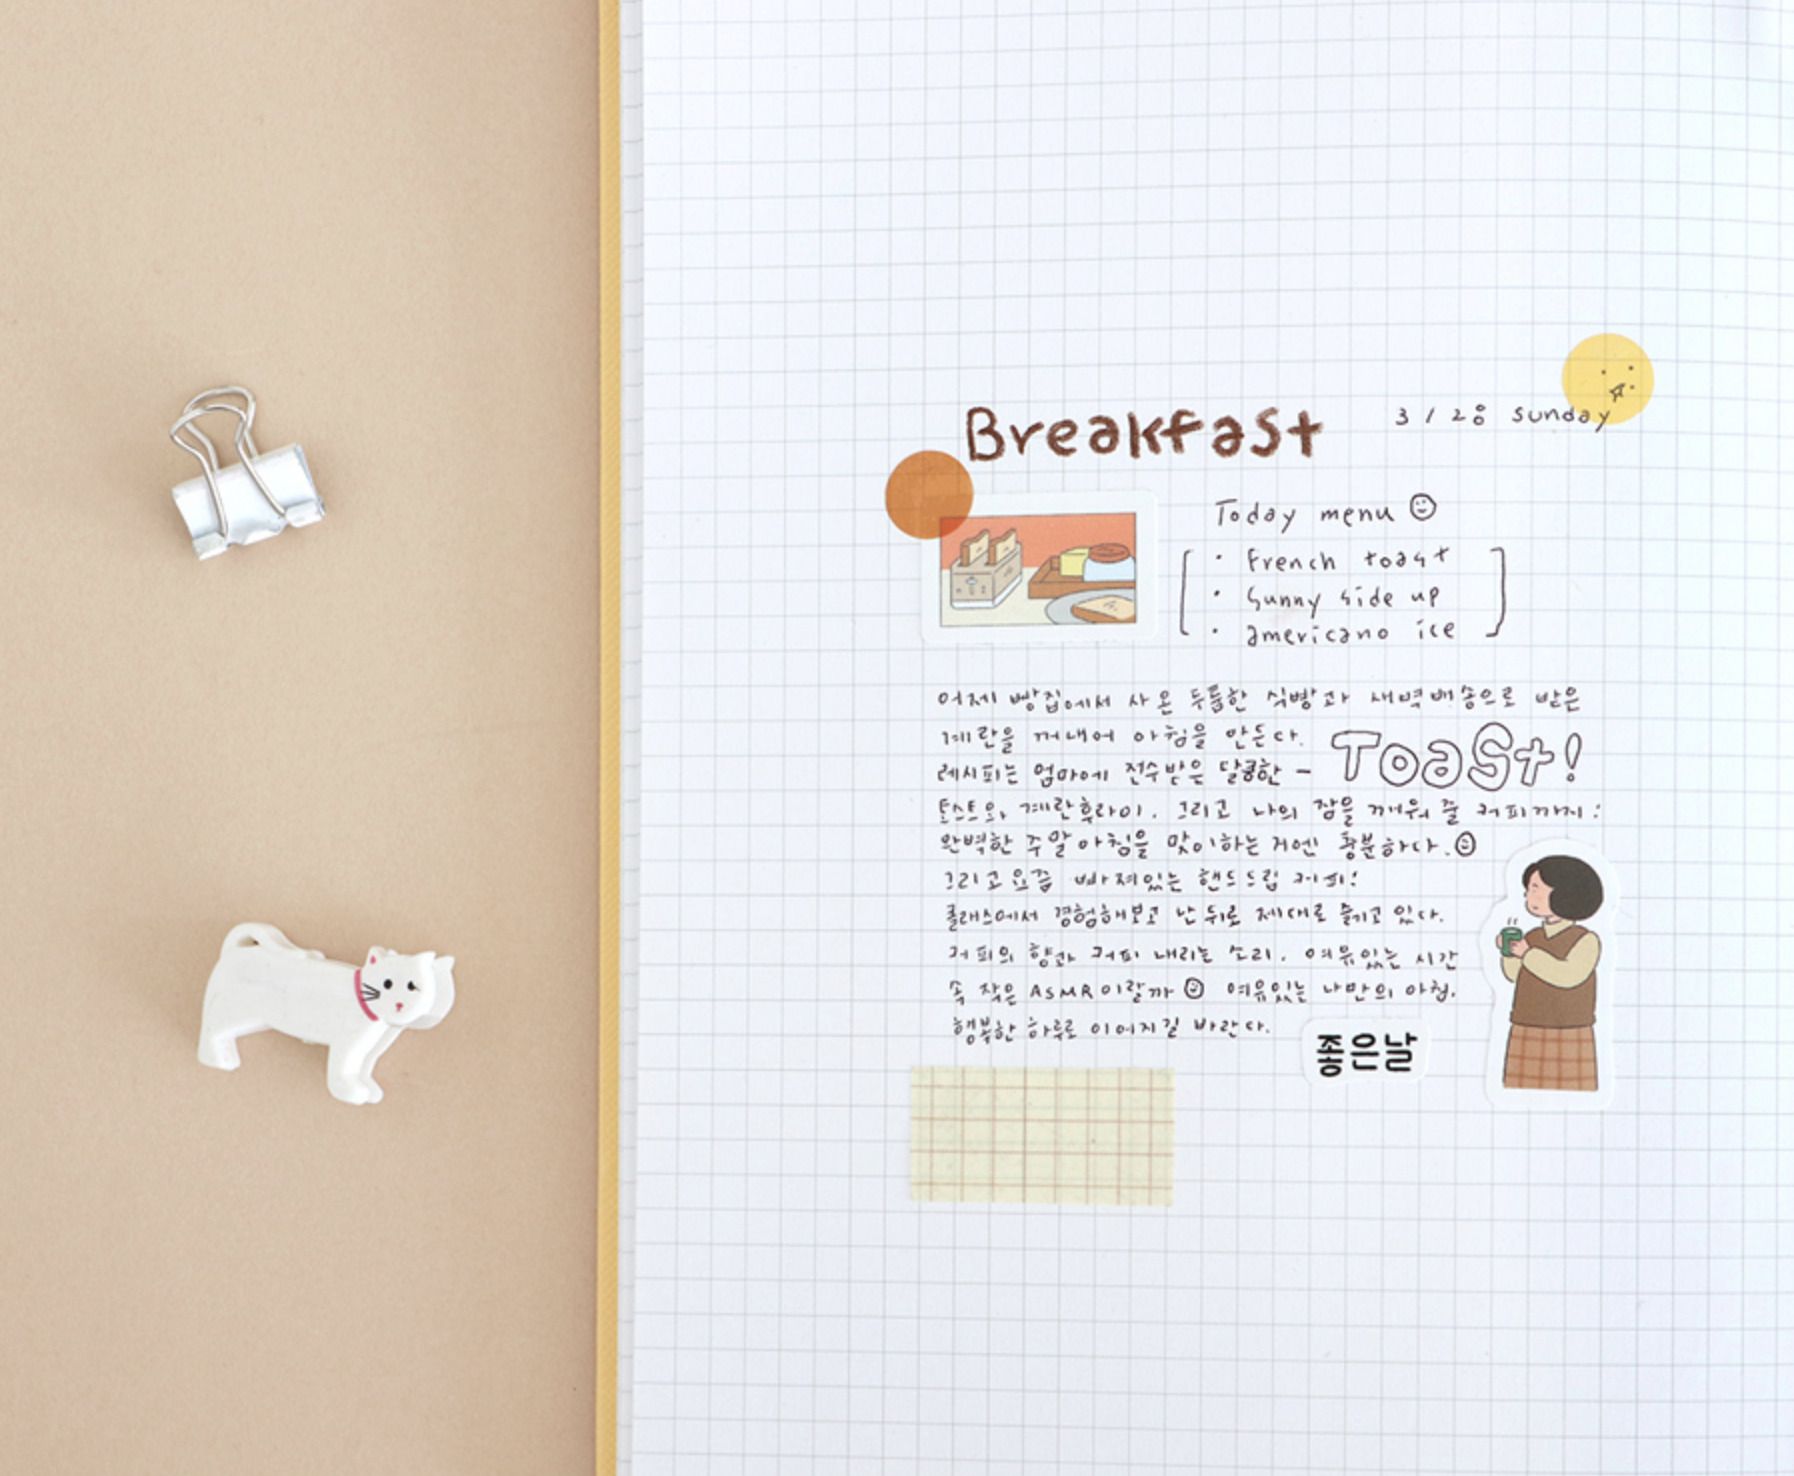 Breakfast
3/28 sunday
Today menu
· French toast
· Sunny side up
· americano ice
어제 빵집에서 사온 두툼한 식빵과 새벽배송으로 받은
계란을 꺼내어 아침을 만든다.
레시피는 엄마에 전수받은 달콤한 –
Toast!
토스트와 계란후라이. 그리고 나의 잠을 깨워 줄 커피까지!
완벽한 주말아침을 맞이하는거엔 충분하다.
그리고요즘 빠져있는 핸드드립 커피!
클래스에서 경험해보고 난 뒤로 제대로 즐기고 있다.
커피의 향과 커피 내리는 소리. 여유있는 시간
속 작은 ASMR이랄까 여유있는 나만의 아침.
행복한 하루로 이어지길 바란다.
좋은날